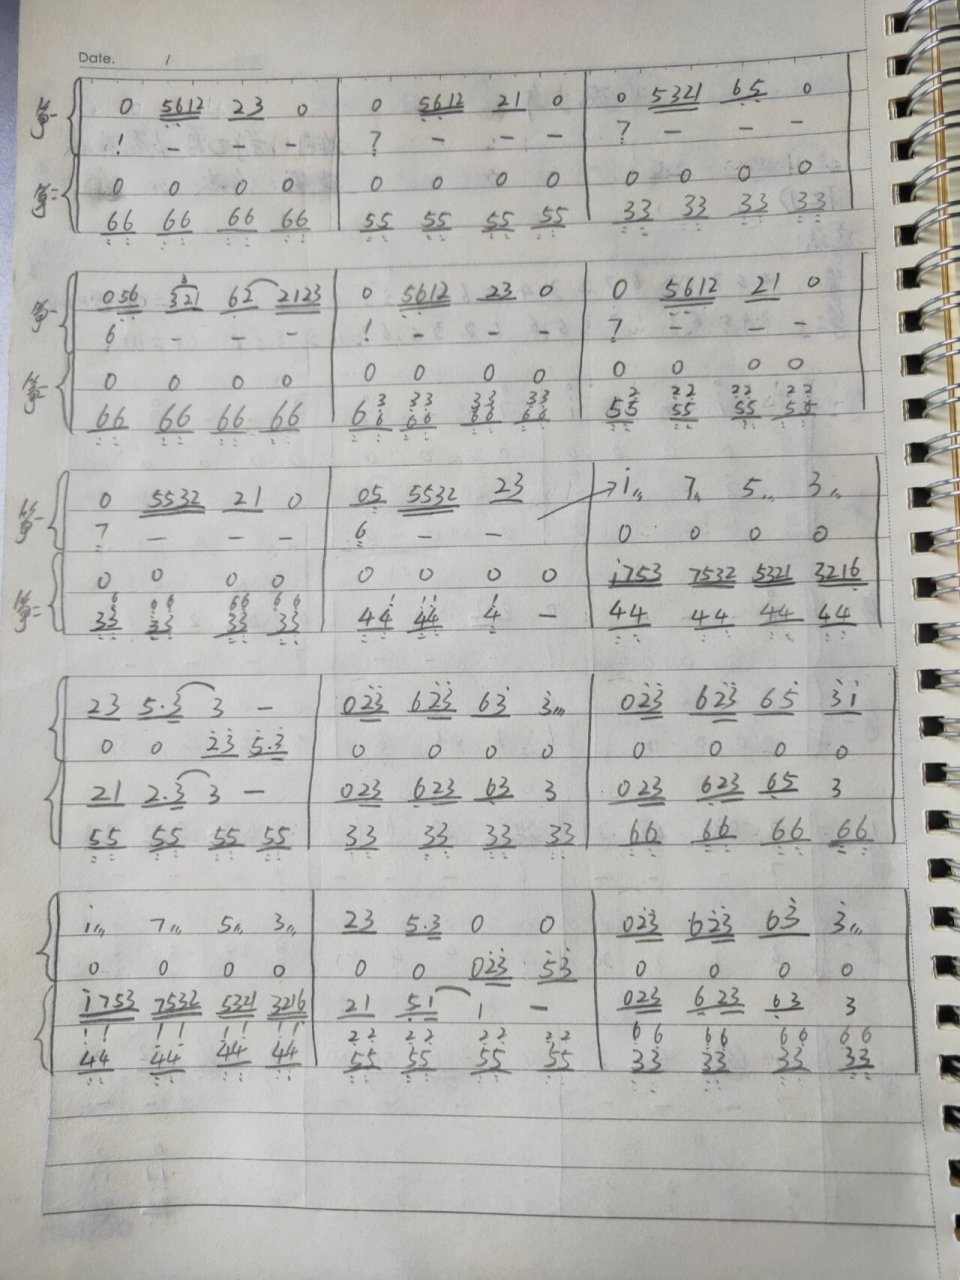 Date. /
0 5612 23 0 | 0 5612 21 0 | 0 5321 65 0
1 - - - | 7 - - - | 7 - - -
0 0 0 0 | 0 0 0 0 | 0 0 0 0
66 66 66 66 | 55 55 55 55 | 33 33 33 33
056 321 62 2123 | 0 5612 23 0 | 0 5612 21 0
3
6 - - - | 1 - - - | 7 - - -
0 0 0 0 | 0 0 0 0 | 0 0 0 0
3 33 33 33 | 2 22 22 22
66 66 66 66 | 66 66 66 66 | 55 55 55 55
0 5532 21 0 | 05 5532 23 | i 7 5 3
7 - - - | 6 - - | 0 0 0 0
0 0 0 0 | 0 0 0 0 | i753 7532 5321 3216
6 66 66 66 | 1 11 1
33 33 33 33 | 44 44 4 - | 44 44 44 44
23 5.3 3 - | 023 623 63 3 | 023 623 65 3i
0 0 23 5.3 | 0 0 0 0 | 0 0 0 0
21 2.3 3 - | 023 623 63 3 | 023 623 65 3
55 55 55 55 | 33 33 33 33 | 66 66 66 66
i 7 5 3 | 23 5.3 0 0 | 023 623 63 3
0 0 0 0 | 0 0 023 53 | 0 0 0 0
i753 7532 5321 3216 | 21 51 1 - | 023 623 63 3
11 11 11 11 | 22 22 22 22 | 66 66 66 66
44 44 44 44 | 55 55 55 55 | 33 33 33 33